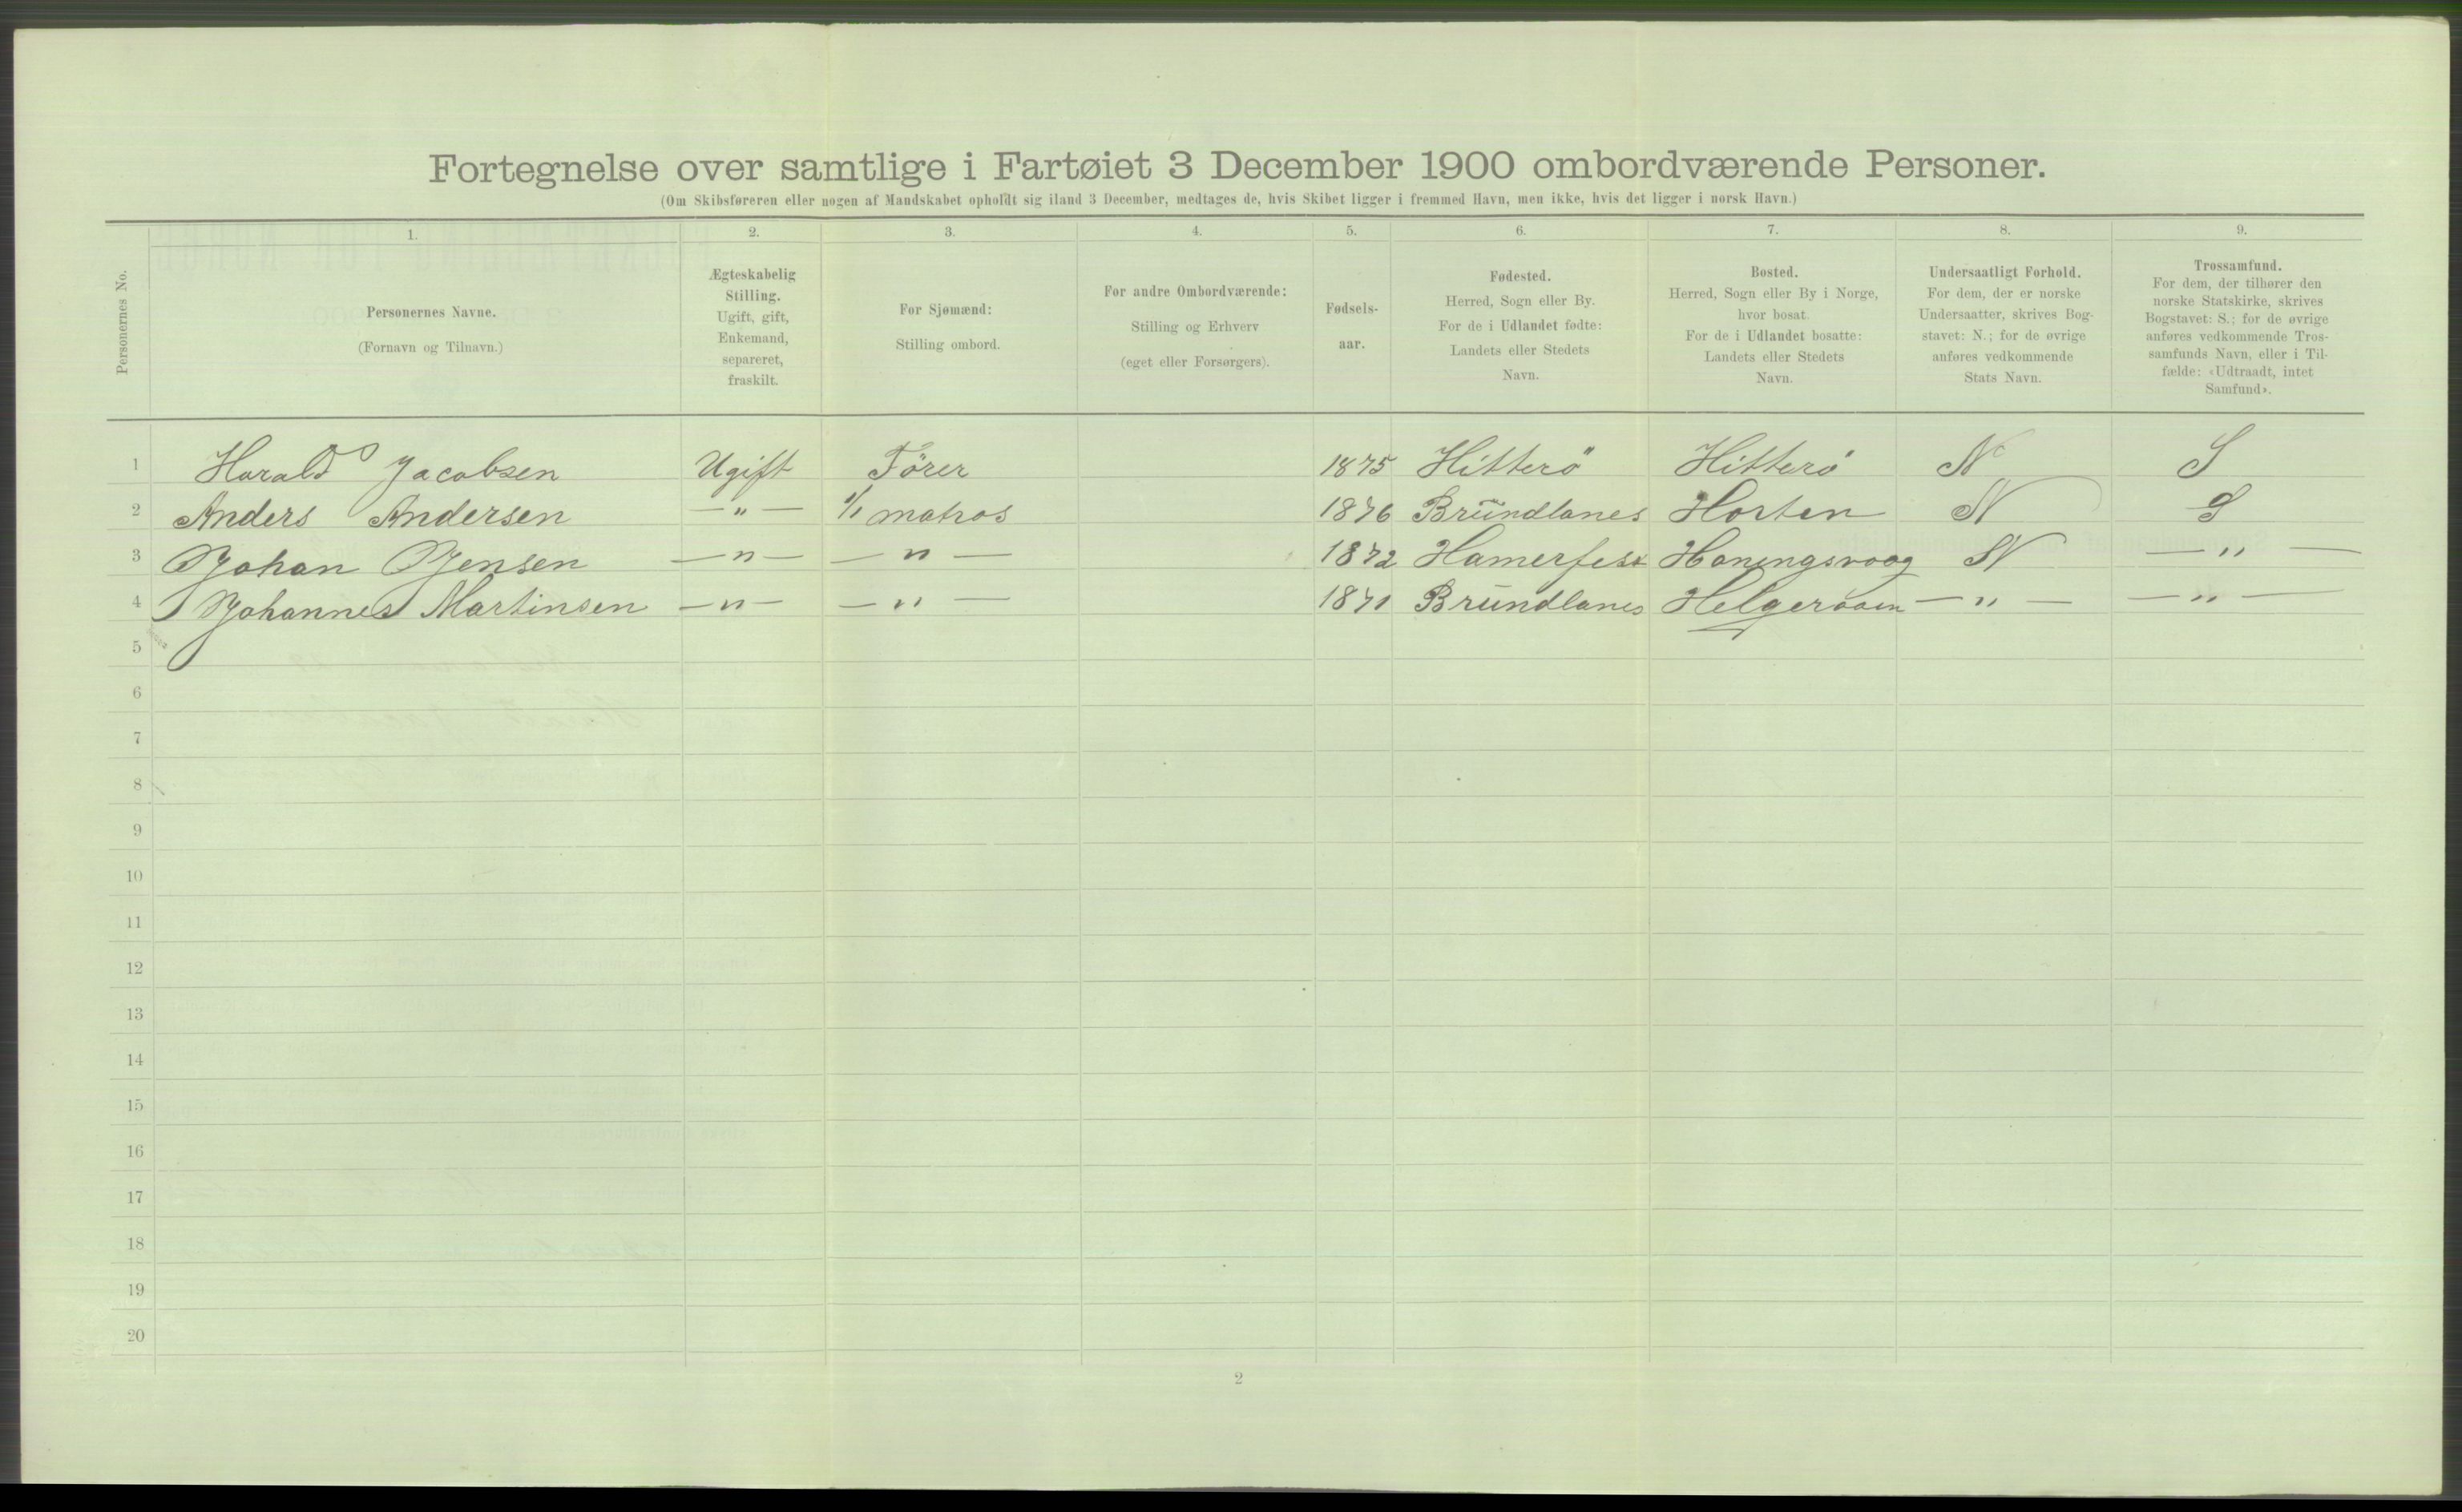 Fortegnelse over samtlige i Fartøiet 3 December 1900 ombordværende Personer.
(Om Skibsføreren eller nogen af Mandskabet opholdt sig iland 3 December, medtages de, hvis Skibet ligger i fremmed Havn, men ikke, hvis det ligger i norsk Havn.)
Personernes No.
1.
Personernes Navne.
(Fornavn og Tilnavn.)
2.
Ægteskabelig
Stilling.
Ugift, gift,
Enkemand,
separeret,
fraskilt.
3.
For Sjømænd:
Stilling ombord.
4.
For andre Ombordværende:
Stilling og Erhverv
(eget eller Forsørgers).
5.
Fødsels-
aar.
6.
Fødested.
Herred, Sogn eller By.
For de i Udlandet fødte:
Landets eller Stedets
Navn.
7.
Bosted.
Herred, Sogn eller By i Norge,
hvor bosat.
For de i Udlandet bosatte:
Landets eller Stedets
Navn.
8.
Undersaatligt Forhold.
For dem, der er norske
Undersaatter, skrives Bog-
stavet: N.; for de øvrige
anføres vedkommende
Stats Navn.
9.
Trossamfund.
For dem, der tilhører den
norske Statskirke, skrives
Bogstavet: S.; for de øvrige
anføres vedkommende Tros-
samfunds Navn, eller i Til-
fælde: «Udtraadt, intet
Samfund».
1 Harald Jacobsen Ugift Förer 1875 Hitterö Hitterö N S
2 Anders Andersen — " — 1/1 matros 1876 Bründlanes Horten N S
3 Johan Jensen — " — — " — 1872 Hamerfest Honingsvaag N — " —
4 Johannes Martinsen — " — — " — 1871 Bründlanes Helgeroaen — " — — " —
5
6
7
8
9
10
11
12
13
14
15
16
17
18
19
20
2